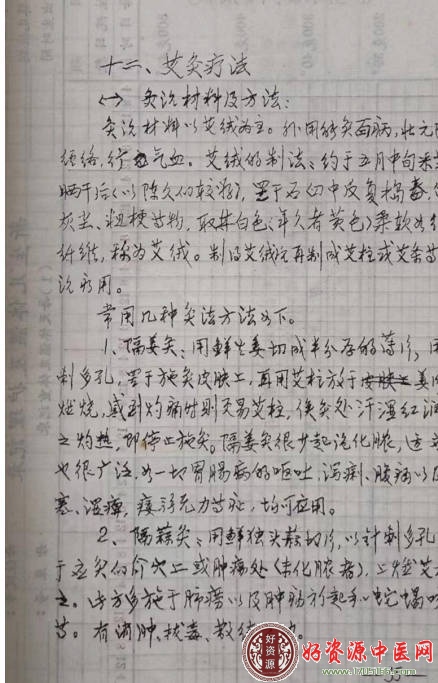 十二、艾灸疗法
(一) 灸治材料及方法:
灸治材料以艾绒为主。外用能灸百病,壮元阳
经络,行气血。艾绒的制法:约于五月中旬采
晒干后(以陈久的较好),置于石臼中反复捣舂,
灰尘、粗梗等物,取其白色(年久者黄色)柔软如
纤维,称为艾绒。制得艾绒后再制成艾柱或艾条等
治所用。
常用几种灸法方法如下。
1、隔姜灸:用鲜生姜切成半分厚的薄片,
刺多孔,置于施灸皮肤上,再用艾柱放于姜
燃烧,感到灼痛时则更易艾柱,俟灸处汗湿红润
之灼热,即停止施灸。隔姜灸很少起泡化脓,这
也很广泛,如一切胃肠病的呕吐、泻痢、腹痛以
寒、湿痹,痿浮无力等症,均可应用。
2、隔蒜灸:用鲜独头蒜切片,以针刺多孔
于应灸的俞穴上或肿疡处(未化脓者),上燃艾
之。此方多施于肺痨以及肿疡初起
等。有消肿、拔毒、散结
好资源中医网